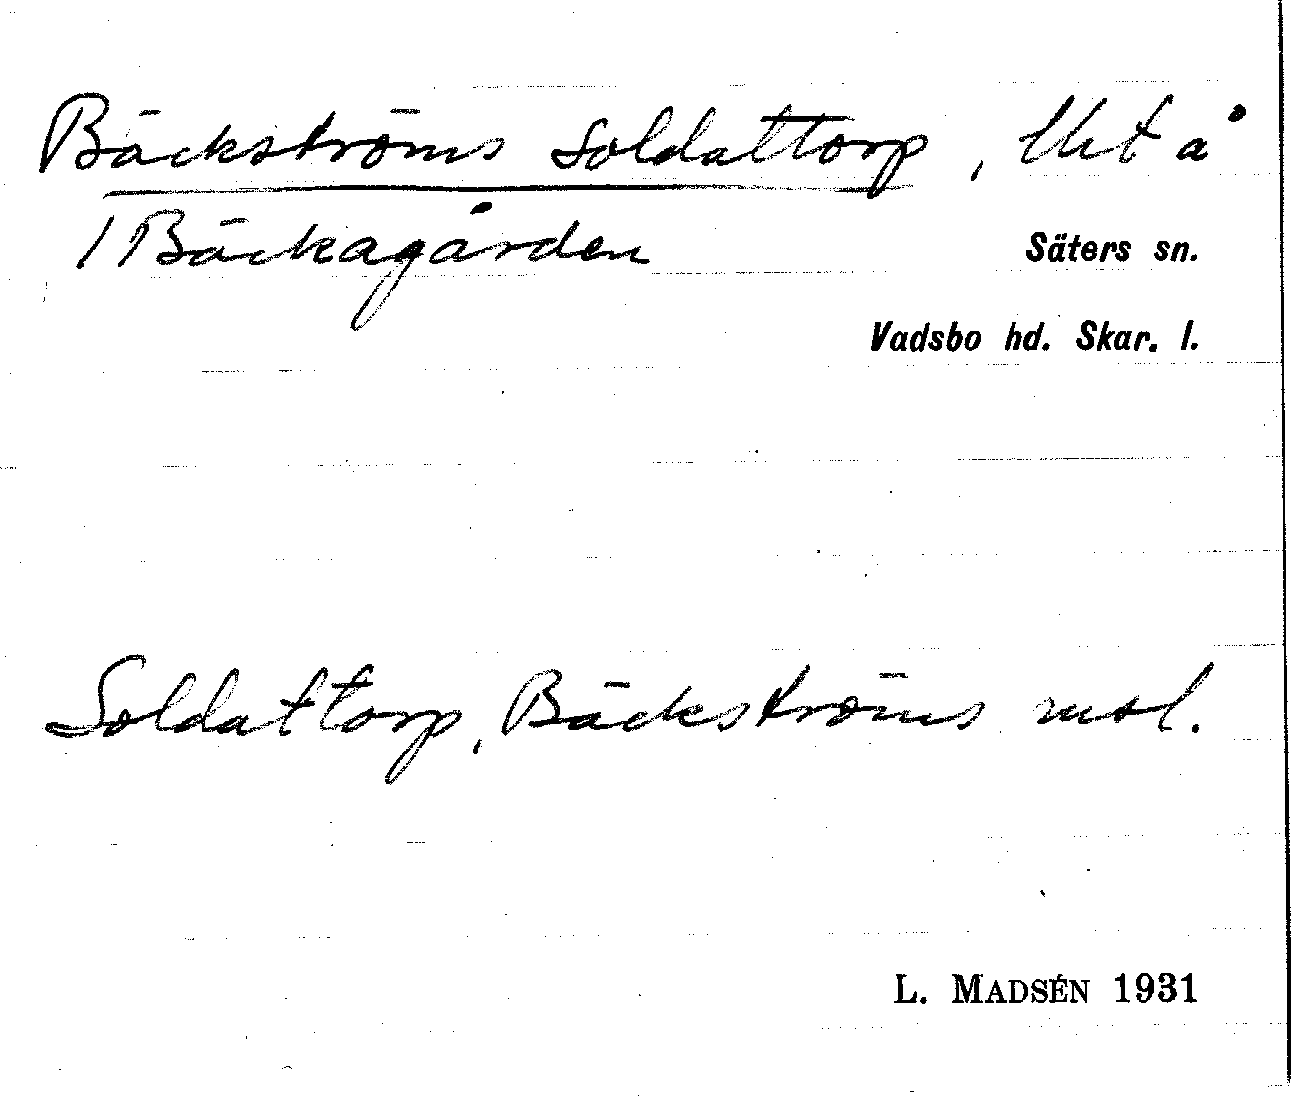 Bäckströms soldattorp, lht å
/ Bäckagården
Säters sn.
Vadsbo hd. Skar. l.
Soldattorp, Bäckströms
L. MADSÉN 1931